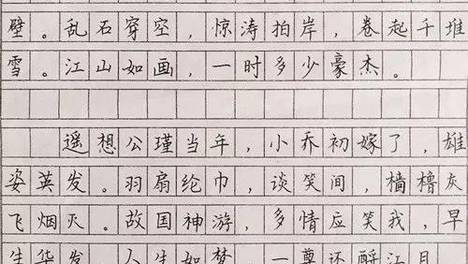 壁。乱石穿空，惊涛拍岸，卷起千堆
雪。江山如画，一时多少豪杰。
遥想公瑾当年，小乔初嫁了，雄
姿英发。羽扇纶巾，谈笑间，樯橹灰
飞烟灭。故国神游，多情应笑我，早
生华发。人生如梦，一尊还酹江月。